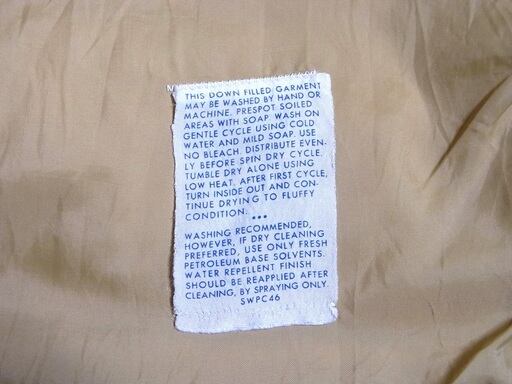 THIS DOWN FILLED GARMENT
MAY BE WASHED BY HAND OR
MACHINE. PRESPOT SOILED
AREAS WITH SOAP. WASH ON
GENTLE CYCLE USING COLD
WATER AND MILD SOAP. USE
NO BLEACH. DISTRIBUTE EVEN-
LY BEFORE SPIN DRY CYCLE.
TUMBLE DRY ALONE USING
LOW HEAT. AFTER FIRST CYCLE,
TURN INSIDE OUT AND CON-
TINUE DRYING TO FLUFFY
CONDITION. •••
WASHING RECOMMENDED,
HOWEVER, IF DRY CLEANING
PREFERRED, USE ONLY FRESH
PETROLEUM BASE SOLVENTS.
WATER REPELLENT FINISH
SHOULD BE REAPPLIED AFTER
CLEANING, BY SPRAYING ONLY.
SWPC46